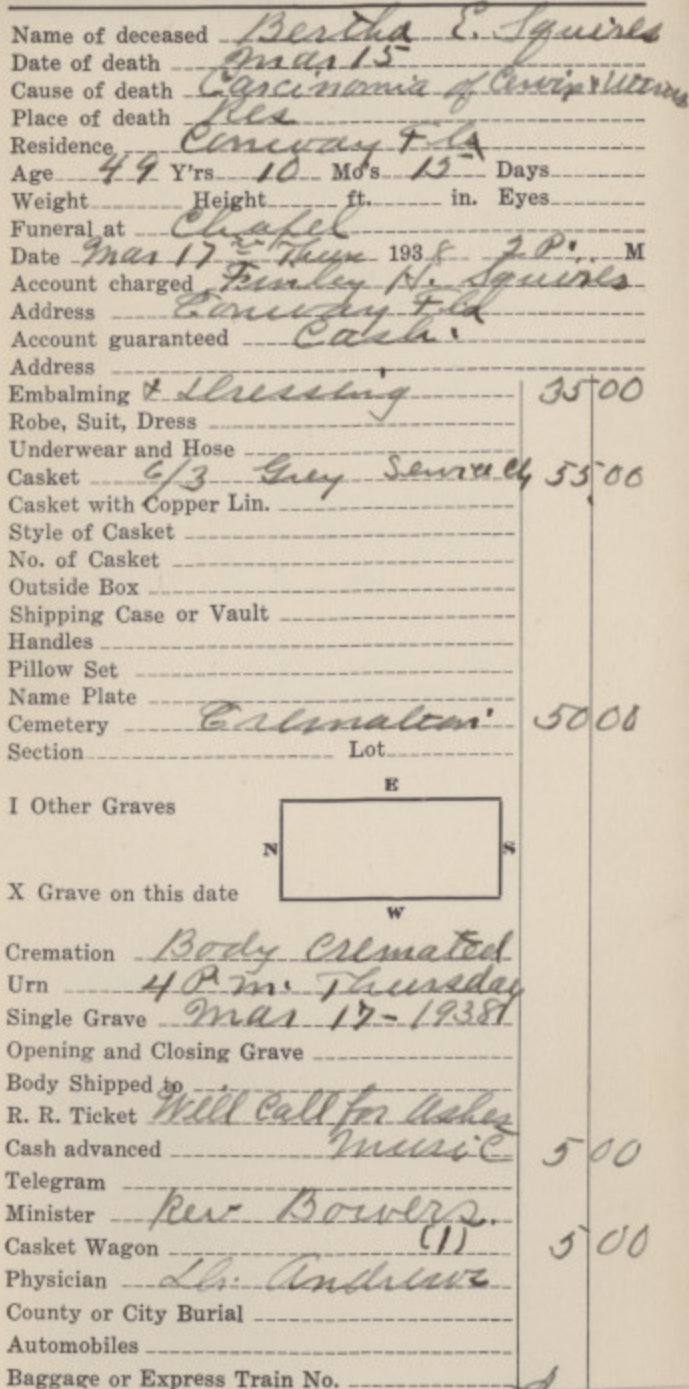 Name of deceased Bertha E. Squires
Date of death Mar 15
Cause of death Carcinomia of Cervix & Uterus
Place of death Res
Residence Conway Fla
Age 49 Y'rs 10 Mo's 15 Days
Weight Height ft. in. Eyes
Funeral at Chapel
Date Mar 17 Thur 1938 2 P. M
Account charged Finley H. Squires
Address Conway Fla
Account guaranteed Cash.
Address
Embalming & Dressing 35 00
Robe, Suit, Dress
Underwear and Hose
Casket 6/3 Grey 55 00
Casket with Copper Lin.
Style of Casket
No. of Casket
Outside Box
Shipping Case or Vault
Handles
Pillow Set
Name Plate
Cemetery Cremation 50 00
Section Lot
E
I Other Graves
N S
X Grave on this date
W
Cremation Body Cremated
Urn 4 P.m. Thursday
Single Grave Mar 17-1938
Opening and Closing Grave
Body Shipped to
R. R. Ticket Will Call for Ashes
Cash advanced Music 5 00
Telegram
Minister Rev Bowers.
Casket Wagon (1) 5 00
Physician Dr. Andrews
County or City Burial
Automobiles
Baggage or Express Train No.